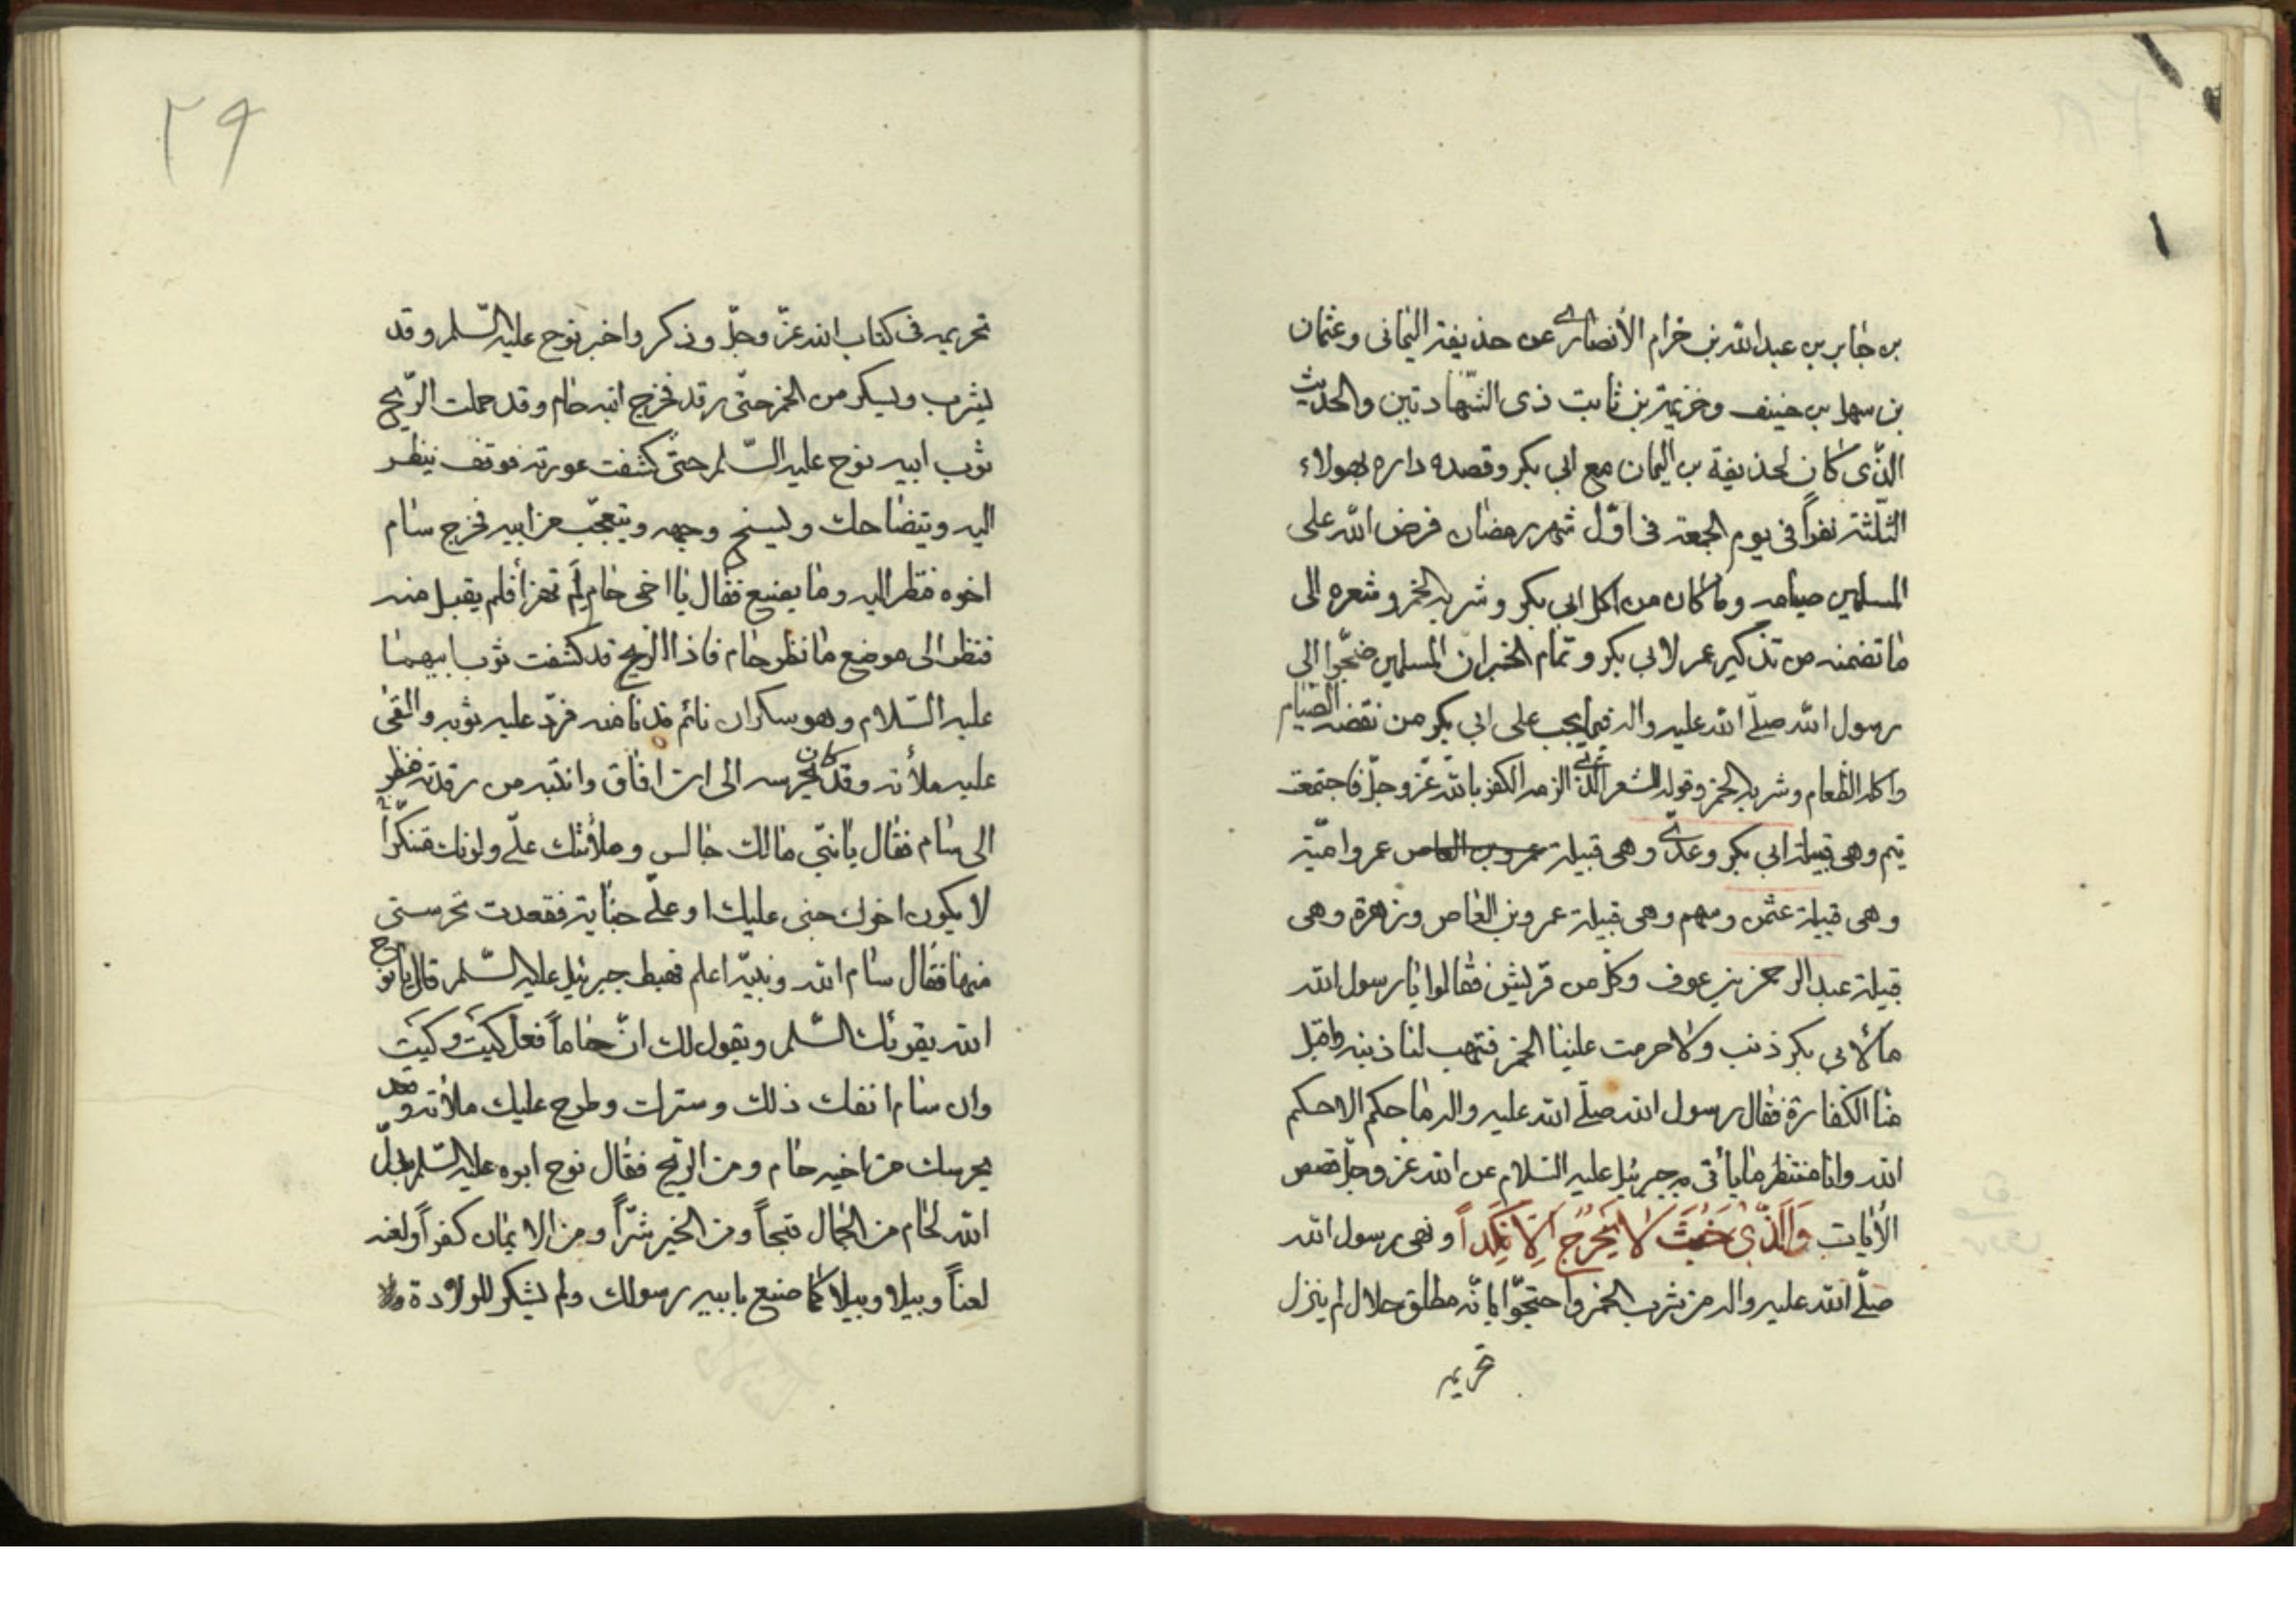 بن جابر بن عبد الله بن خرام الأنصاري عن حذيفة اليماني وعثمان
بن سهل بن حنيف وخزيمة بن ثابت ذى الشهادتين والحديث
الذّى كان لحذيفة بن اليمان مع ابي بكر وقصده داره بهولاء
الثلثة نفراً فى يوم الجمعة فى اوّل شهر رمضان فرض الله على
المسلمين صيامه وما كان من اكل ابي بكر وشربه الخمر وشعره الى
ما تضمنه من تذكير عمر لابي بكر وتمام الخبر ان المسلمين ضجّوا الى
رسول الله صلّے الله عليه واله فيما يجب على ابي بكر من نقضه الصيام
واكله الطعام وشربه الخمر وقوله الشعر الذّي الزمه الكفر بالله عزّ وجلّ فاجتمعت
تيم وهى قبيلة ابي بكر وعدّي وهى قبيلة عمرو بن العاص عمر واميّة
وهى قبيلة عثمن وسهم وهى قبيلة عمرو بن العاص وزهرة وهى
قبيلة عبد الرحمن بن عوف وكلّ من قريش فقالوا يا رسول الله
ما لأبي بكر ذنب ولا حرمت علينا الخمر فتهب لنا ذنبه واقبل
منا الكفارة فقال رسول الله صلّے الله عليه واله ما حكم الا حكم
الله وانا منتظر ما يأتى به جبرئيل عليه السلام عن الله عزّ وجلّ قصص
الأيات وَالَّذّى خَبُثَ لا يَخْرُجُ اِلّا نَكِداً ونهى رسول الله
صلّے الله عليه واله من شرب الخمر واحتجّوا بانّه مطلق حلال لم ينزل
تحريمه
٢٩
تحريمه فى كتاب الله عزّ وجلّ وذكر واخبر نوح عليه السّلم وقد
يشرب ويسكر من الخمر حتّى رقد فخرج ابنه حام وقد حملت الرّيح
ثوب ابيه نوح عليه السّلم حتىّ كشفت عورته فوقف ينظر
اليه ويتضاحك وجهه ويتعجّب من ابيه فخرج سام
اخوه فنظر اليه وما يصنع فقال يا اخى حام لِمَ تهزأ فلم يقبل منه
فنظر الى موضع ما نظر حام فاذا الريح قد كشفت ثوب ابيهما
عليه السّلام وهو سكران نائم فدنا منه فردّ عليه ثوبه والقى
عليه ملأته وقد كان يحرسه الى ان افاق وانتبه من رقدته فنظر
الى سام فقال يا بنىّ ما لك جالس وملأتك علّے ولونك متنكّراً
لا يكون اخوك جنى عليك او علّے جناية فقعدت تحرسني
منها فقال سام الله ونبيّه اعلم فهبط جبرئيل عليه السّلم قال يا نوح
الله يقرئك السّلم ويقول لك انّ حاماً فعل كَيتَ وكَيتَ
وان سام انفك ذلك وسترك وطرح عليك ملأته وقعد
يحرسك من اخيه حام ومن الريح فقال نوح ابوه عليه السّلم بدّل
الله لحام من الجمال قبحاً ومن الخير شرّاً ومن الايمان كفراً ولعنه
لعناً وبيلا وبيلا كما صنع بابيه رسولك ولم يشكر للولادة ولا